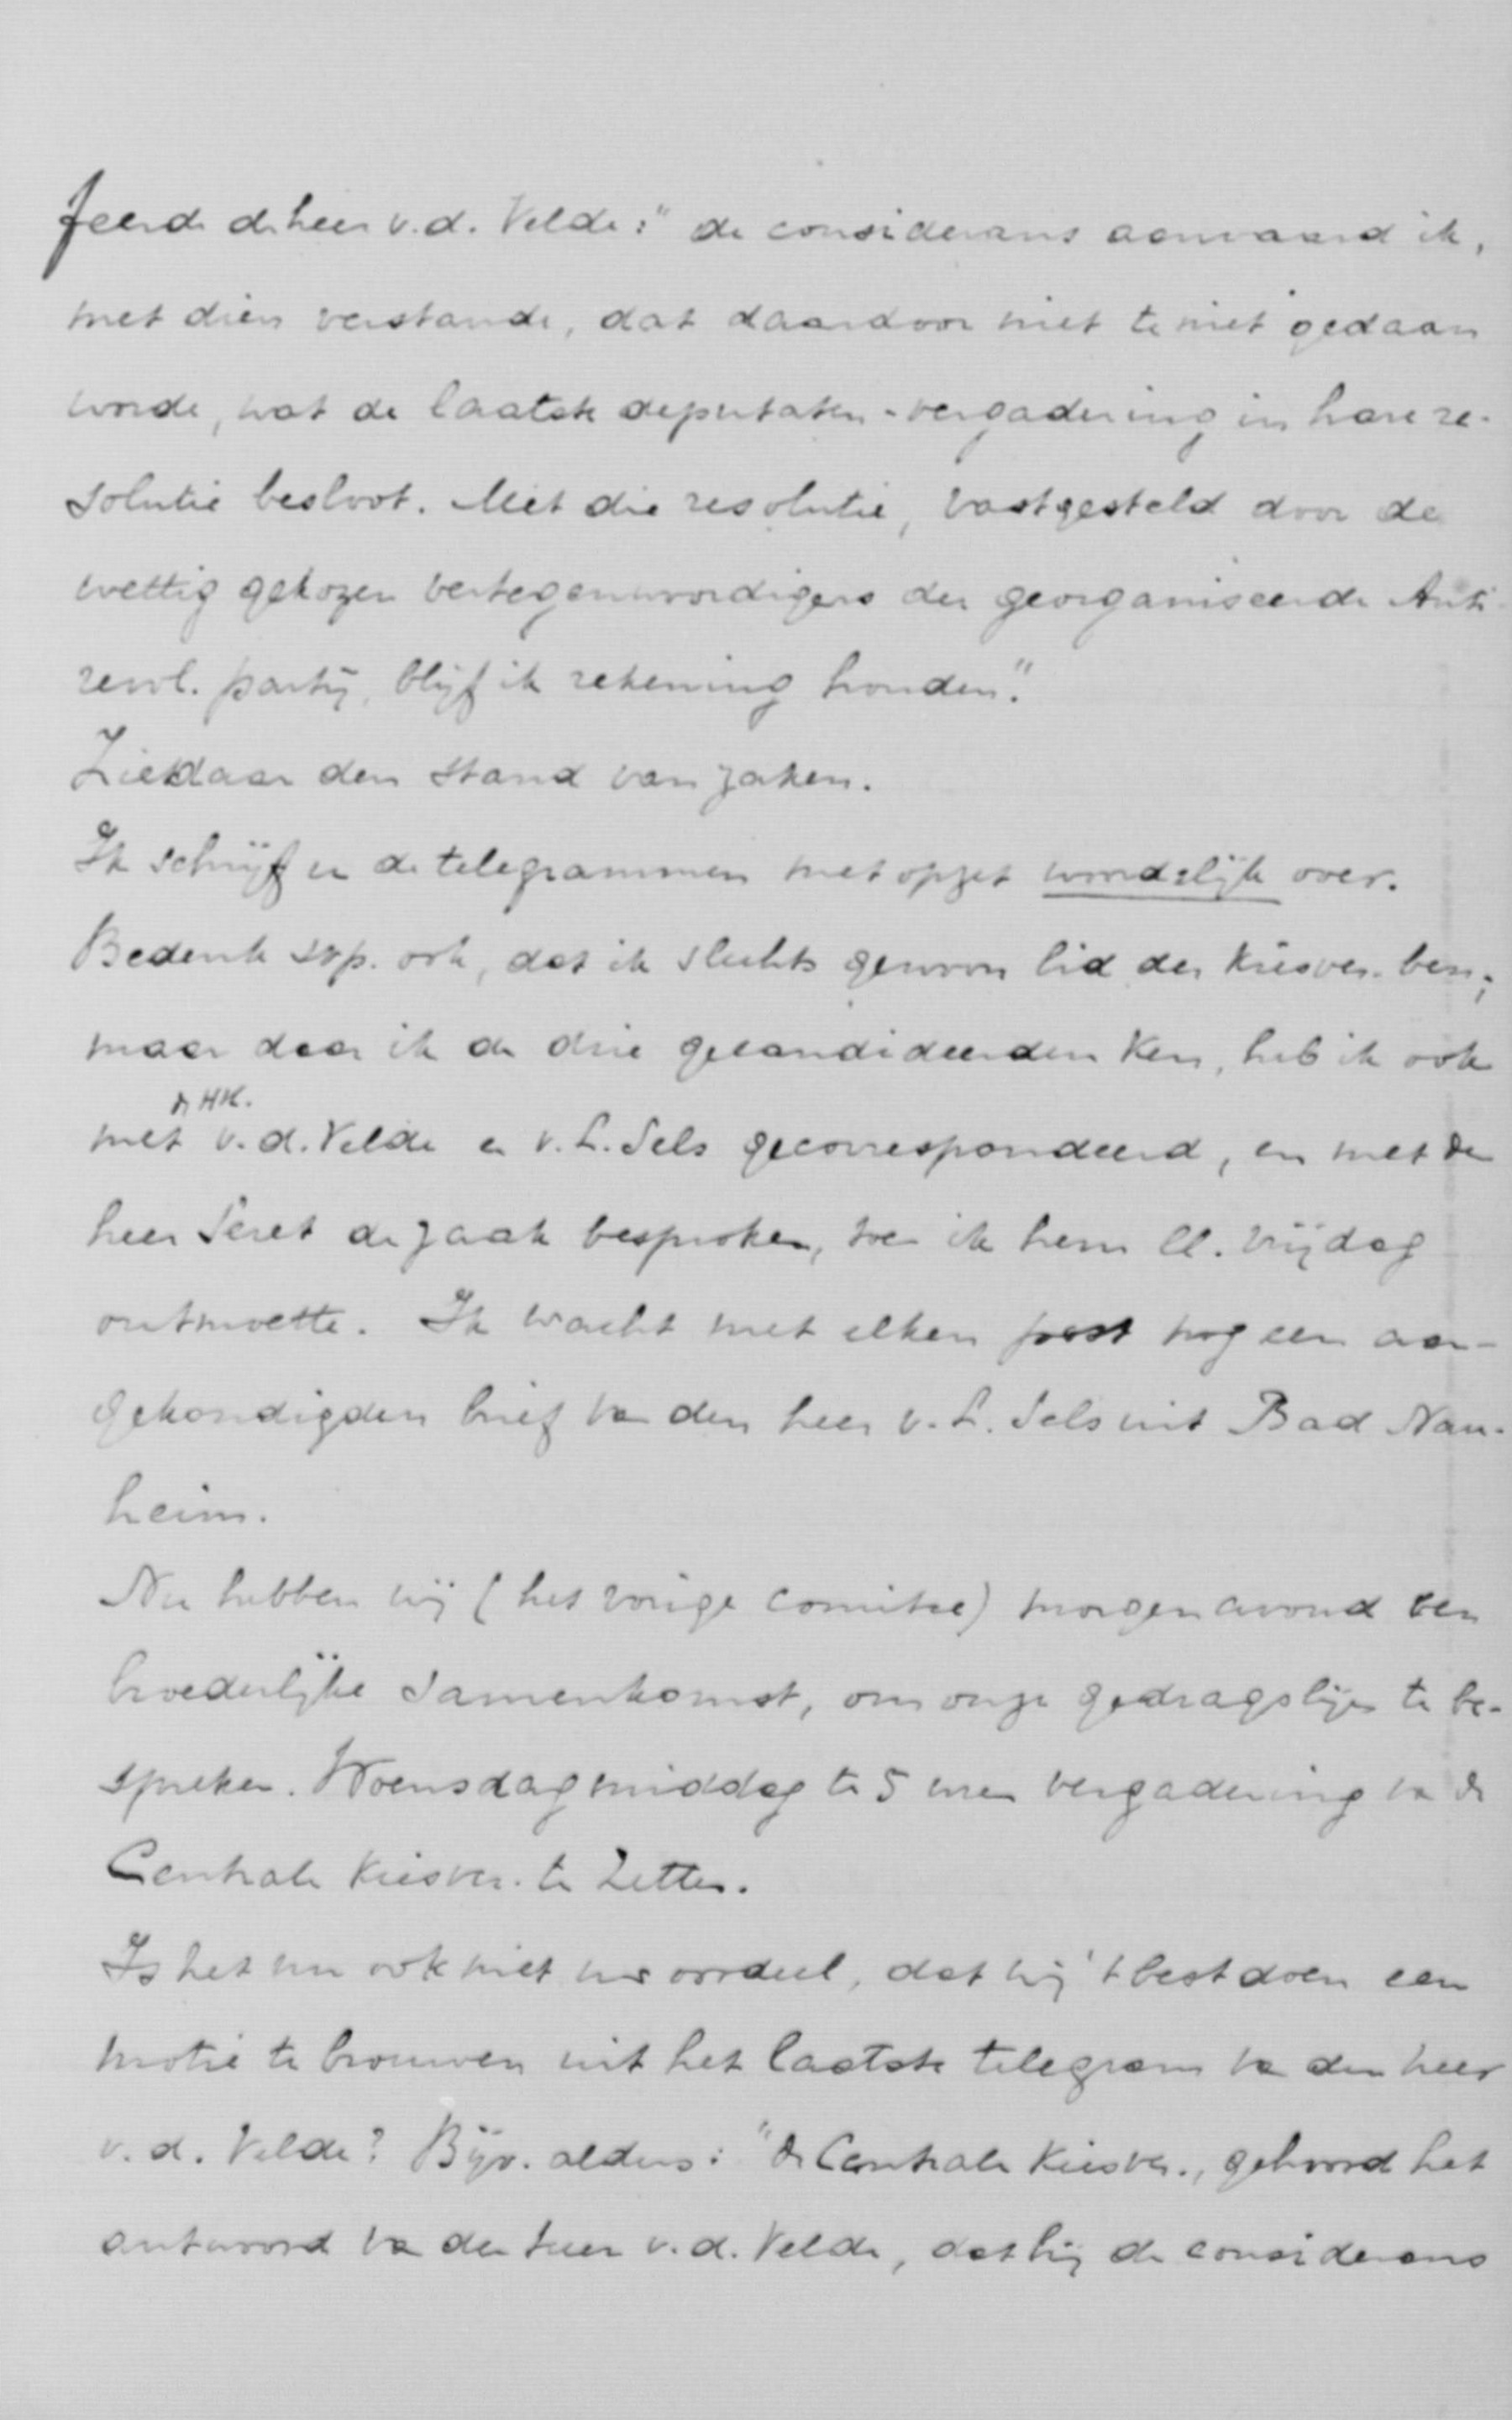 feerde de heer v.d. Velde: "de considerans aanvaard ik,
met dien verstande, dat daardoor niet te niet gedaan
worde, wat de laatste deputaten-vergadering in hare re-
solutie besloot. Met die resolutie, vastgesteld door de
wettig gekozen vertegenwoordigers der georganiseerde Anti
revol. partij, blijf ik rekening houden."
Ziedaar den stand van zaken.
Ik schrijf u de telegrammen met opzet woordelijk over.
Bedenk svp. ook, dat ik slechts gewoon lid der Kiesver. ben;
maar daar ik de drie gecandideerden ken, heb ik ook
de HH.
met v.d. Velde en v. L. Sels gecorrespondeerd, en met den
heer Seret de zaak besproken, toen ik hem ll. vrijdag
ontmoette. Ik wacht met elken post nog een aan-
gekondigden brief van den heer v. L. Sels uit Bad Nau-
heim.
Nu hebben wij (het vorige comitee) morgen avond een
broederlijke samenkomst, om onze gedragslijn te be-
spreken. Woensdagmiddag te 5 uren vergadering van de
Centrale Kiesver. te Zetten.
Is het nu ook niet uw oordeel, dat wij 't best doen een
motie te brouwen uit het laatste telegram van den heer
v.d. Velde? Bijv. aldus: "de Centrale Kiesver., gehoord het
antwoord van den heer v.d. Velde, dat hij de considerans